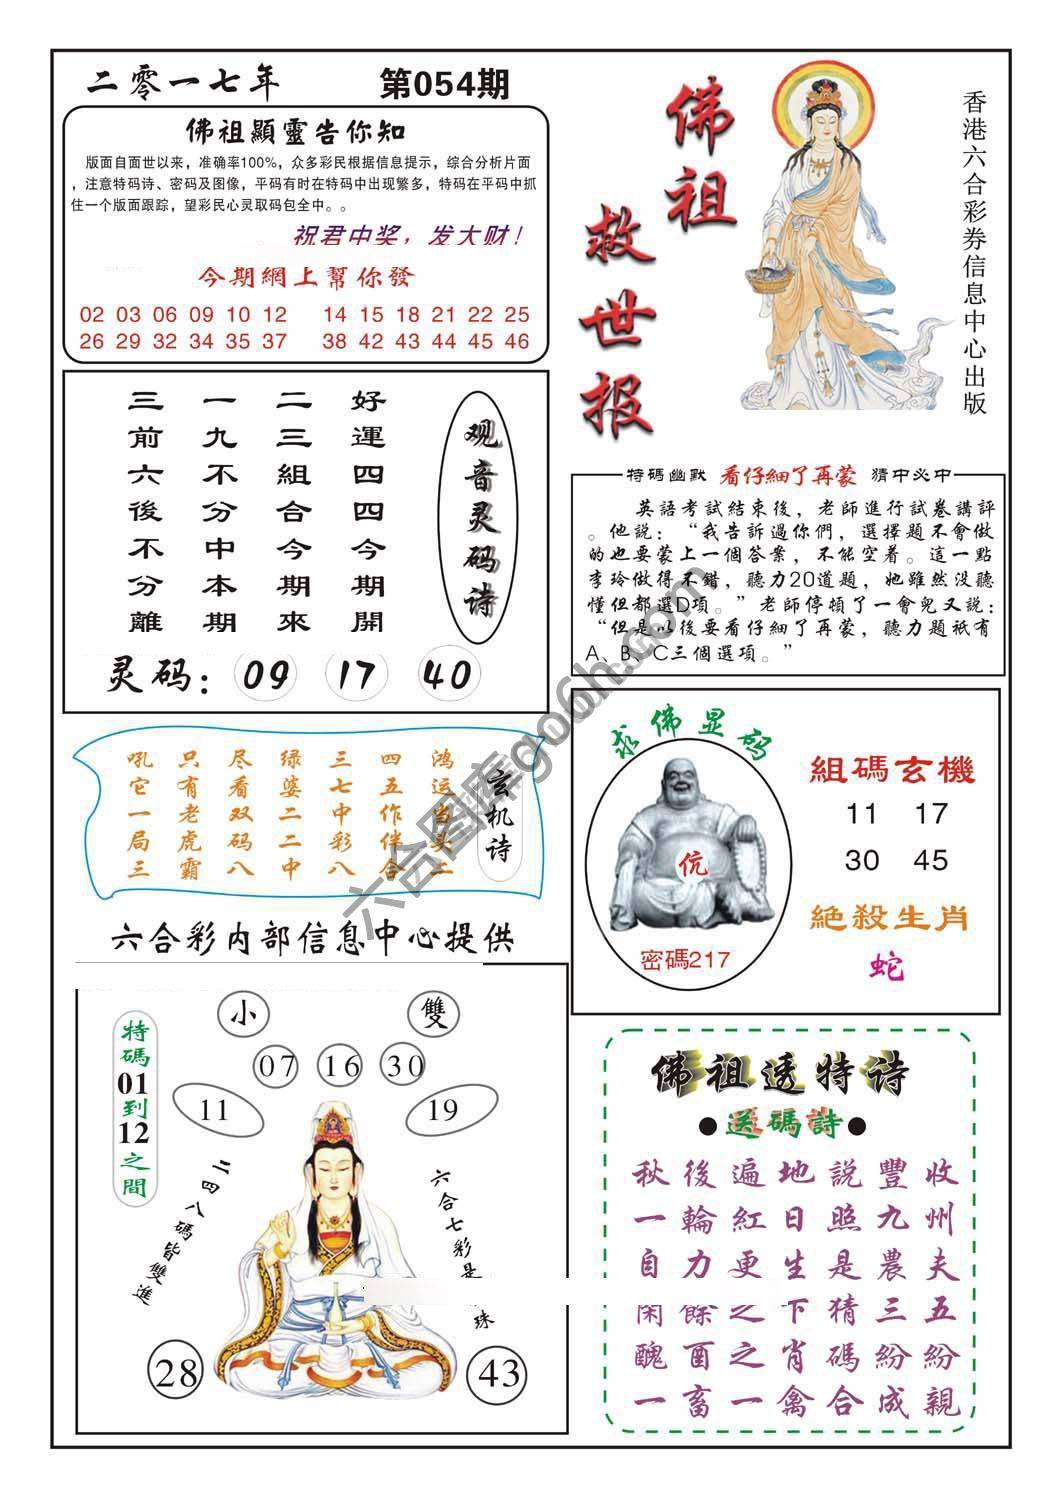 二零一七年 第054期
佛祖顯靈告你知
版面自面世以来，准确率100%，众多彩民根据信息提示，综合分析片面
，注意特码诗、密码及图像，平码有时在特码中出现繁多，特码在平码中抓
住一个版面跟踪，望彩民心灵取码包全中。。
祝君中奖，发大财！
今期網上幫你發
02 03 06 09 10 12 14 15 18 21 22 25
26 29 32 34 35 37 38 42 43 44 45 46
佛祖
救世报
香港六合彩券信息中心出版
观音灵码诗
好運四四今期開
二三組合今期來
一九不分中本期
三前六後不分離
灵码：09 17 40
特碼幽默 看仔細了再蒙 猜中必中
英語考試結束後，老師進行試卷講評
。他說：“我告訴過你們，選擇題不會做
的也要蒙上一個答案，不能空着。這一點
李玲做得不錯，聽力20道題，她雖然没聽
懂但都選D項。”老師停頓了一會兒又説：
“但是以後要看仔細了再蒙，聽力題祇有
A、B、C三個選項。”
玄机诗
鸿运当头二
四五作伴合
三七中彩八
绿婆二二中
尽看双码八
只有老虎霸
吼它一局三
六合彩内部信息中心提供
求佛显码
伉
密碼217
組碼玄機
11 17
30 45
絶殺生肖
蛇
特碼01到12之間
小 雙
07 16 30
11 19
二四八碼皆雙進
六合七彩是
珠
28 43
佛祖透特诗
●送碼詩●
秋後遍地説豐收
一輪紅日照九州
自力更生是農夫
閑餘之下猜三五
醜酉之肖碼紛紛
一畜一禽合成親
六合图库go6h.com